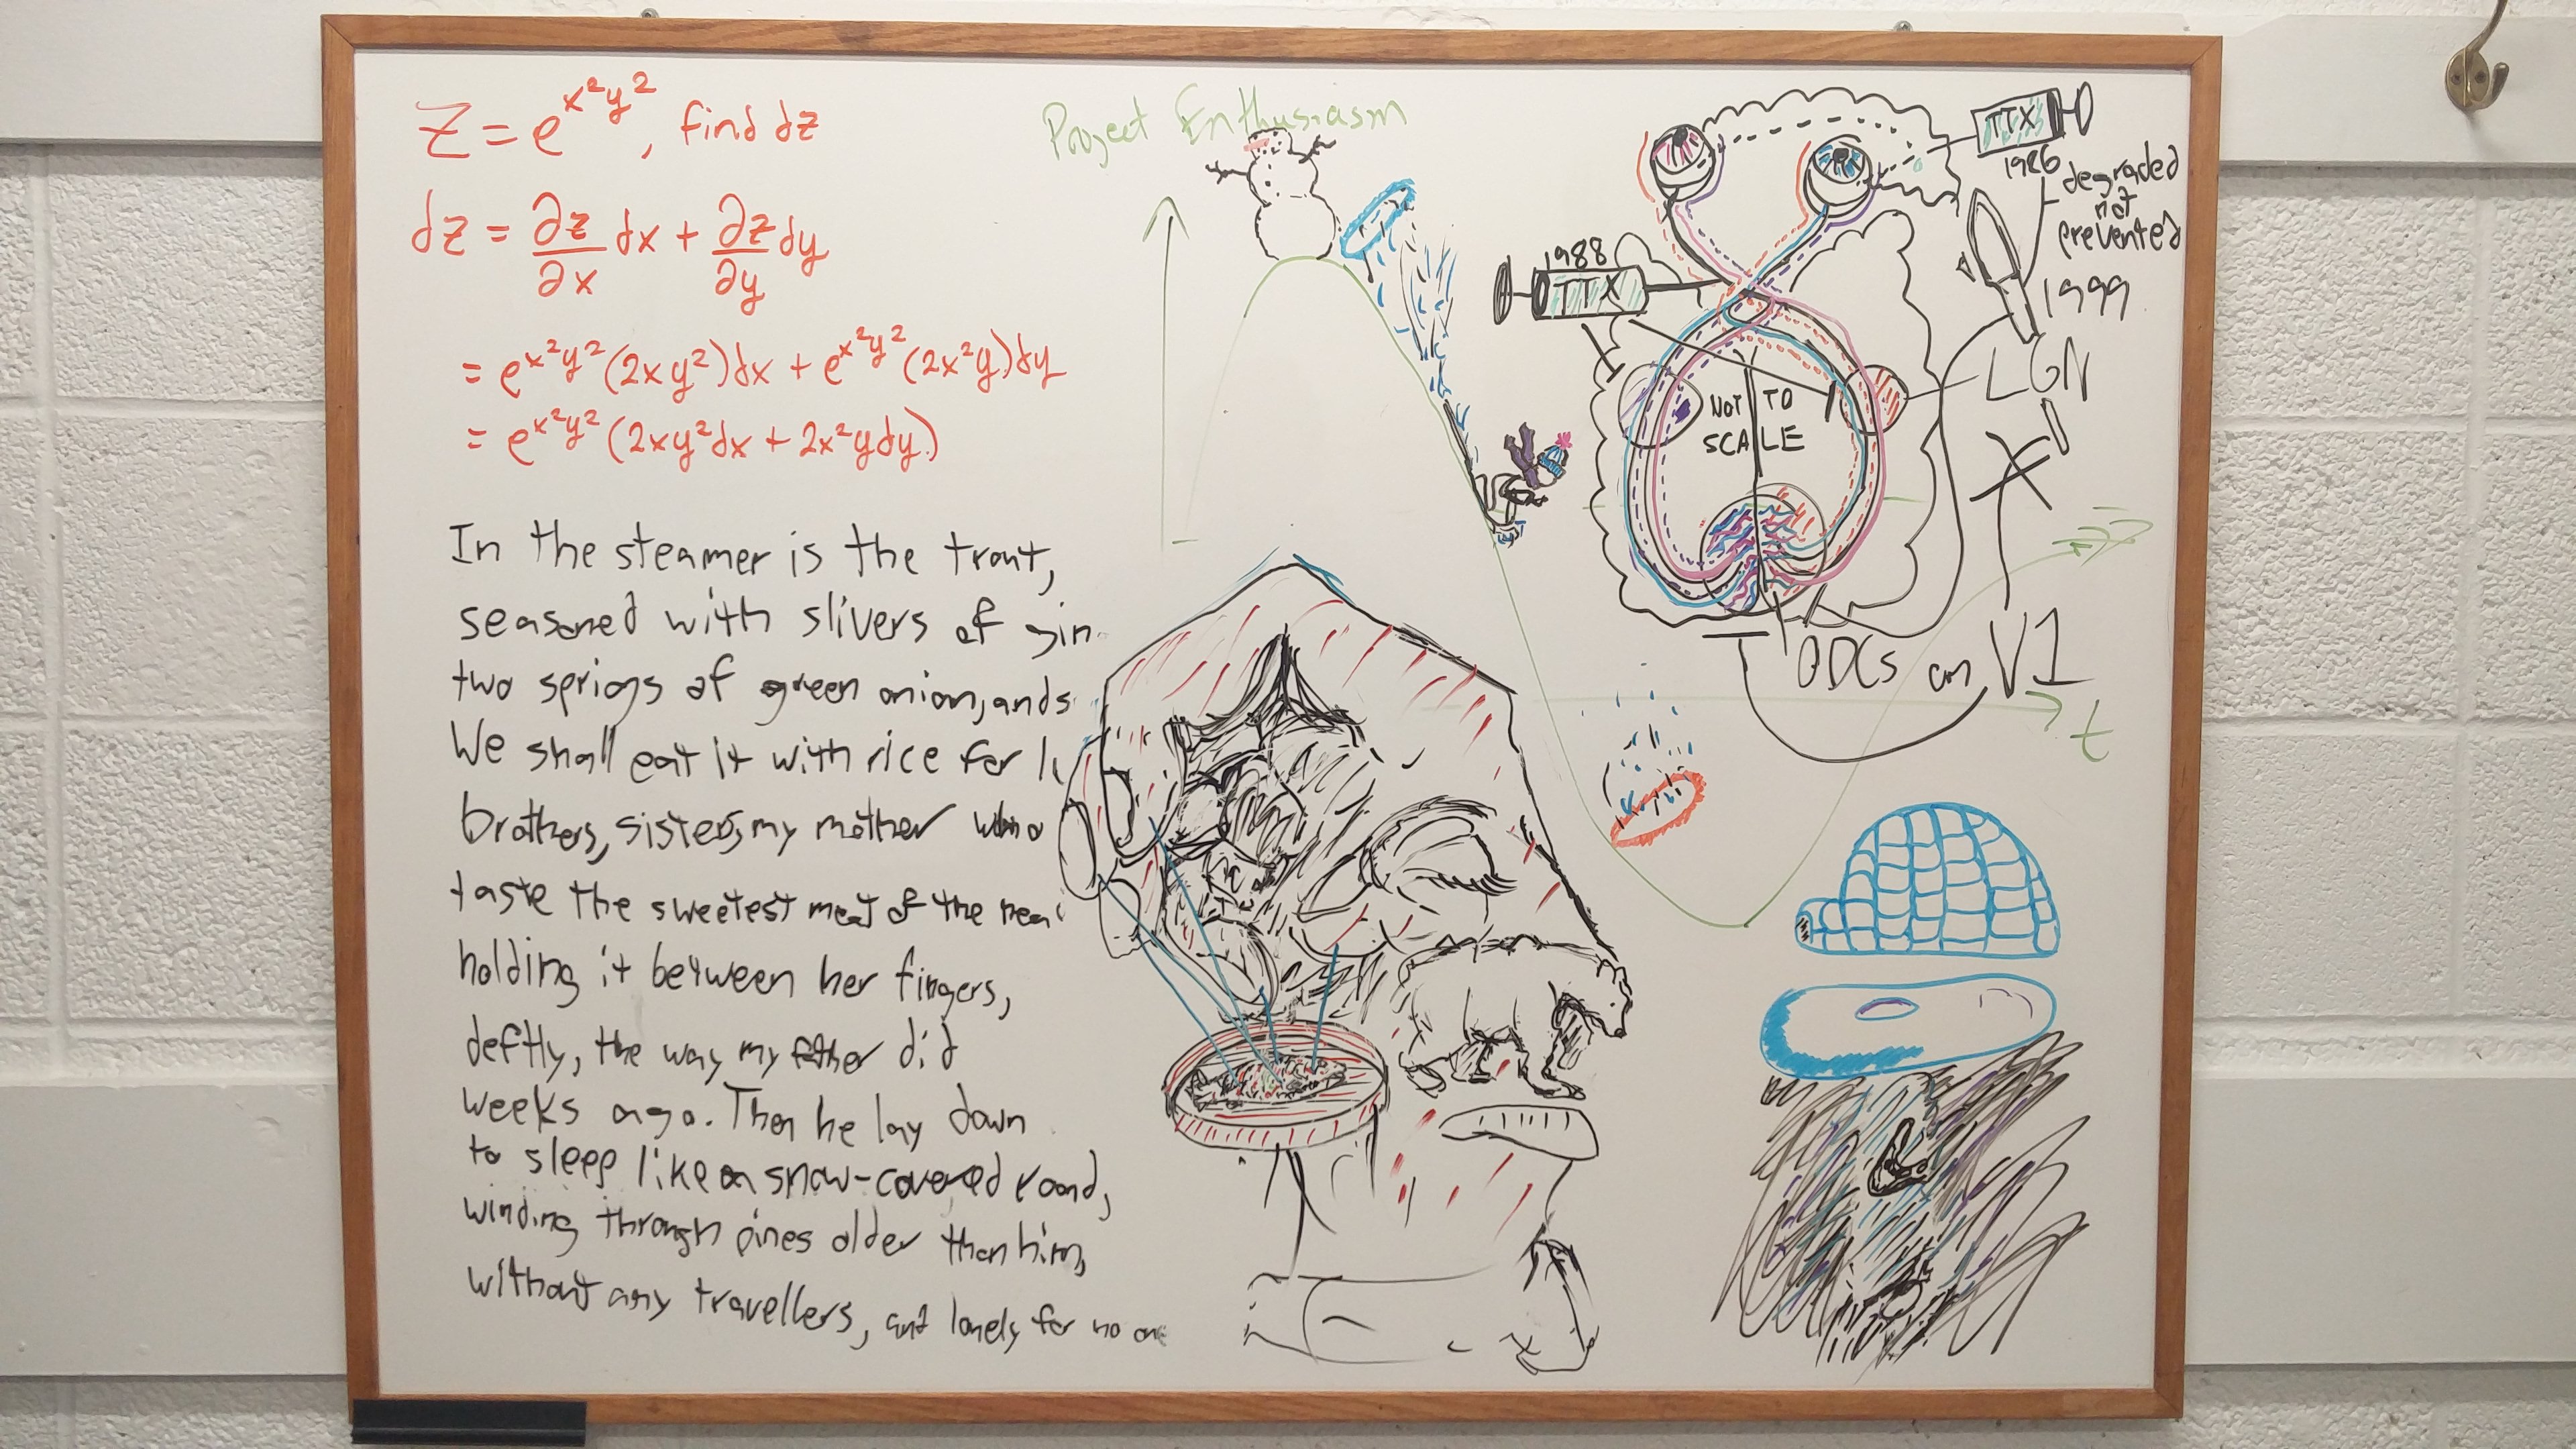 z = e^{x²y²}, find dz
dz = ∂z/∂x dx + ∂z/∂y dy
= e^{x²y²}(2xy²)dx + e^{x²y²}(2x²y)dy
= e^{x²y²}(2xy²dx + 2x²ydy)
In the steamer is the trout,
seasoned with slivers of gin
two sprigs of green onion, and s
We shall eat it with rice for l
brothers, sisters, my mother who
taste the sweetest meat of the hea
holding it between her fingers,
deftly, the way my father did
weeks ago. Then he lay down
to sleep like a snow-covered road,
winding through pines older than him,
without any travellers, and lonely for no one
Project Enthusiasm
t
TTX
1986
degraded
not
prevented
1988
TTX
1999
LGN
NOT TO
SCALE
ODCs on V1